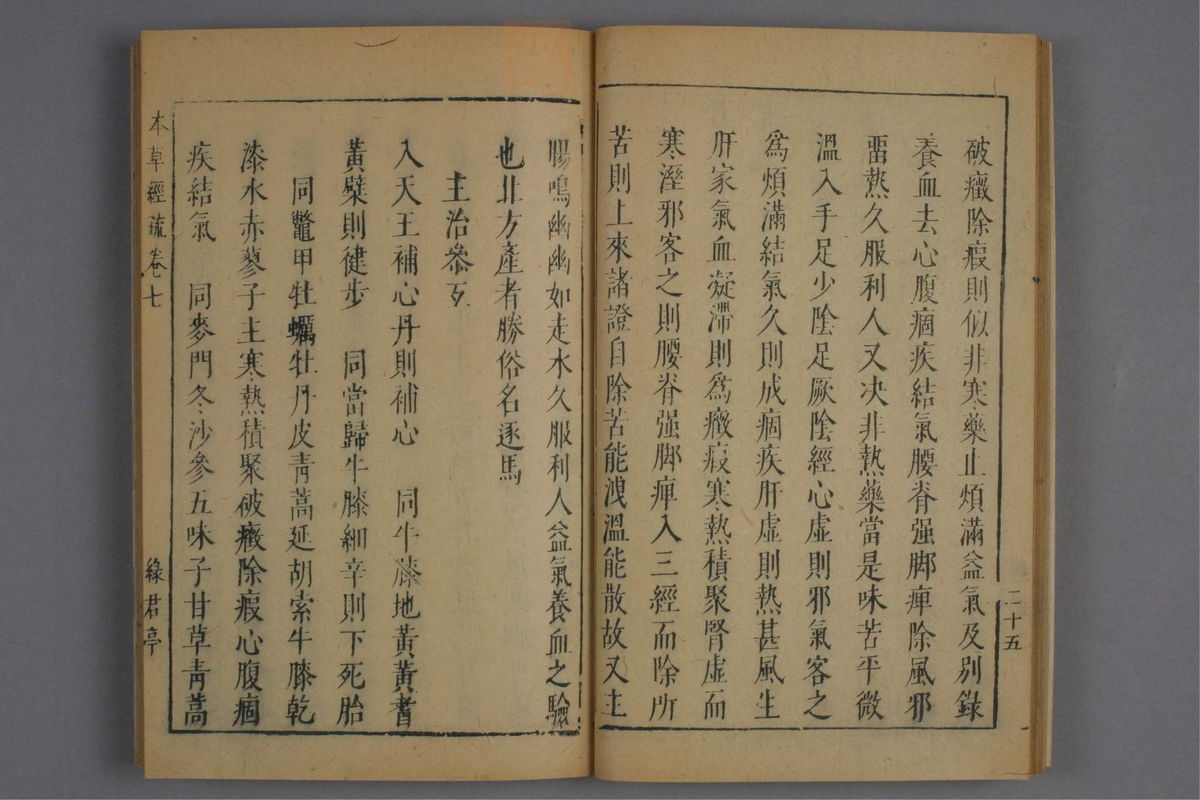 破癥除瘕則似非寒藥止煩滿益氣及別錄
養血去心腹痼疾結氣腰脊强脚痺除風邪
畱熱久服利人又决非熱藥當是味苦平微
溫入手足少陰足厥陰經心虛則邪氣客之
爲煩滿結氣久則成痼疾肝虛則熱甚風生
肝家氣血凝滯則爲癥瘕寒熱積聚腎虛而
寒溼邪客之則腰脊强脚痺入三經而除所
苦則上來諸證自除苦能洩溫能散故又主
二十五
腸鳴幽幽如走水久服利人益氣養血之驗
也北方產者勝俗名逐馬
主治參互
入天王補心丹則補心 同牛膝地黃黃耆
黃檗則健步 同當歸牛膝細辛則下死胎
同鼈甲牡蠣牡丹皮青蒿延胡索牛膝乾
漆水赤蓼子主寒熱積聚破癥除瘕心腹痼
疾結氣 同麥門冬沙參五味子甘草青蒿
本草經疏卷七
綠君亭